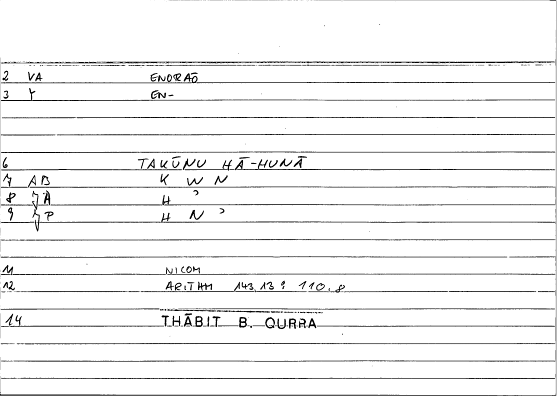 2 VA ENORAŌ
3 Y EN-
6 TAKŪNU HĀ-HUNĀ
7 AB K W N
8 A H ʾ
9 P H N ʾ
11 NICOM
12 ARITHM 143.13 : 110.8
14 THĀBIT B. QURRA